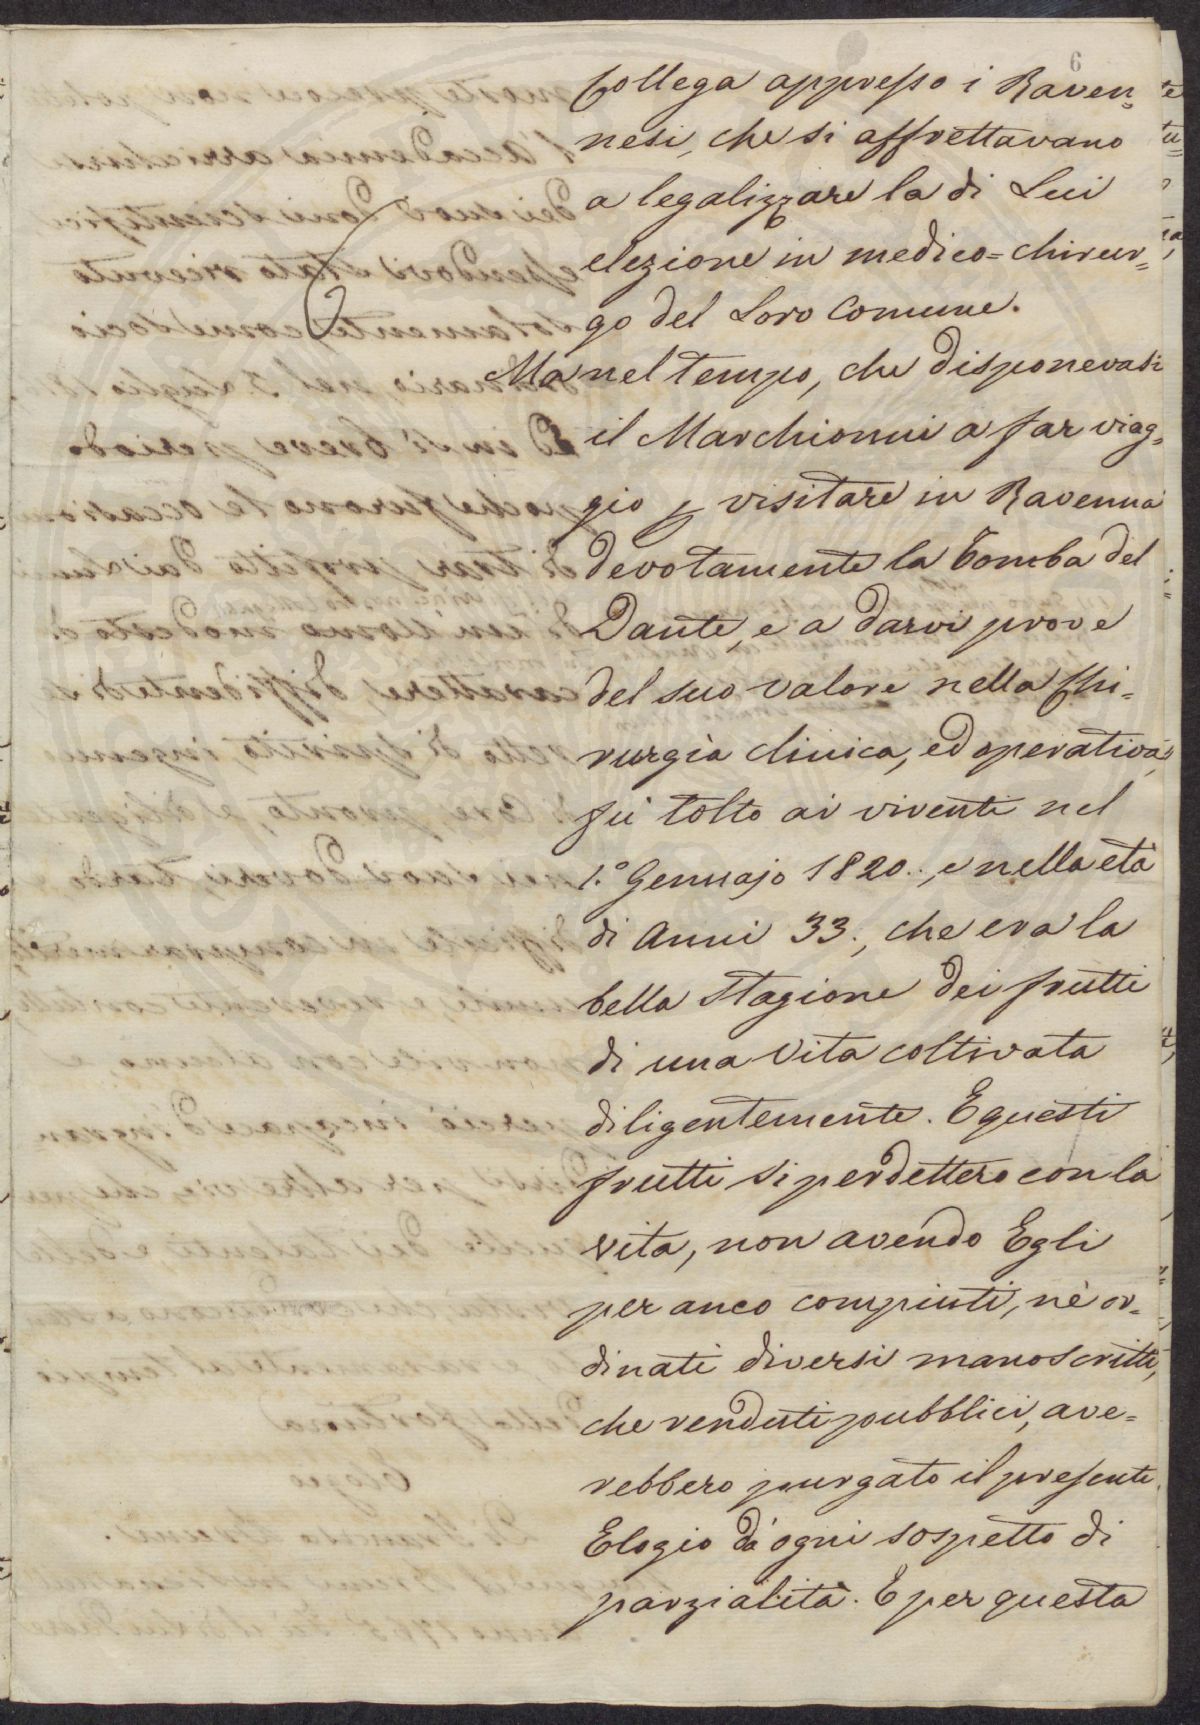 6
Collega appresso i Raven=
nesi, che si affrettavano
a legalizzare la di Lui
elezione in medico=chirur=
go del Loro Comune.
Ma nel tempo, che disponevasi
il Marchionni a far viag=
gio p visitare in Ravenna
devotamente la Tomba del
Dante, e a darvi prove
del suo valore nella Chi=
rurgia clinica, ed operativa,
fù tolto ai viventi nel
1.° Gennajo 1820., e nella età
di Anni 33., che era la
bella Stagione dei frutti
di una Vita coltivata
diligentemente. E questi
frutti si perdettero con la
vita, non avendo Egli
per anco compiuti, nè or=
dinati diversi manoscritti,
che renduti pubblici, ave=
rebbero purgato il presente
Elogio da ogni sospetto di
parzialità. E per questa